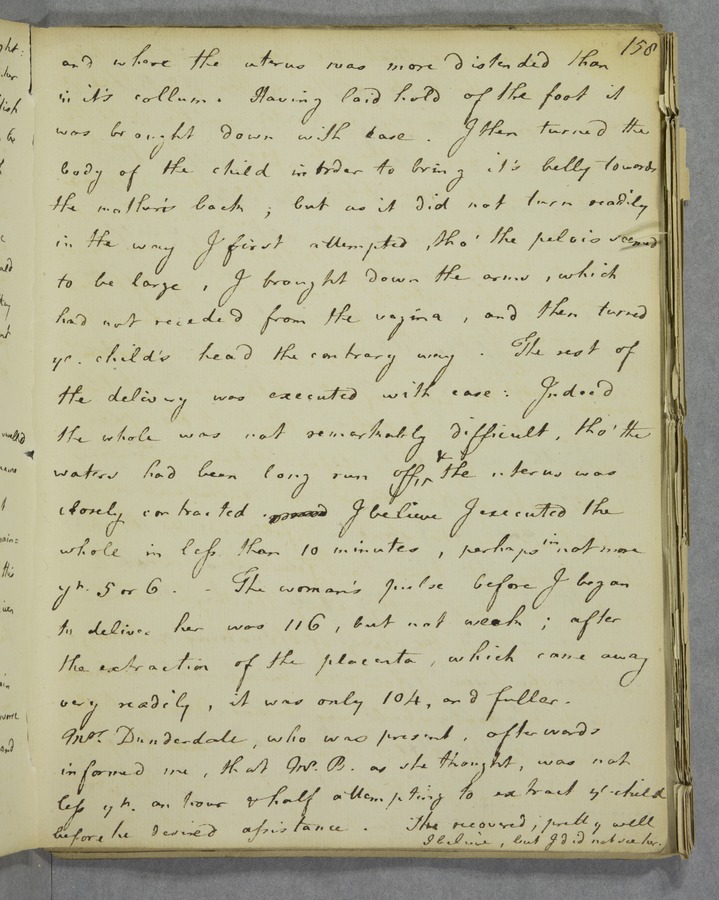 158
and where the uterus was more distended than
in it's collum. Having laid hold of the foot it
was brought down with ease. I then turned the
body of the child in order to bring it's belly towards
the mother's back ; but as it did not turn readily
in the way I first attempted , tho' the pelvis seemed
to be large , I brought down the arms , which
had not receded from the vagina , and then turned
ye. child's head the contrary way . The rest of
the delivery was executed with ease : Indeed
the whole was not remarkably difficult , tho' the
waters had been long run off, & the uterus was
closely contracted I believe I executed the
whole in less than 10 minutes , perhaps in not more
yn. 5 or 6 . - The woman's pulse before I began
to deliver her was 116 , but not weak ; after
the extraction of the placenta , which came away
very readily , it was only 104, and fuller.
Mrs. Dunderdale , who was present , afterwards
informed me , that Mr. B. as she thought , was not
less yn. an hour & half attempting to extract ye child
before he desired assistance . She recovered, pretty well
I believe , but I did not see her.